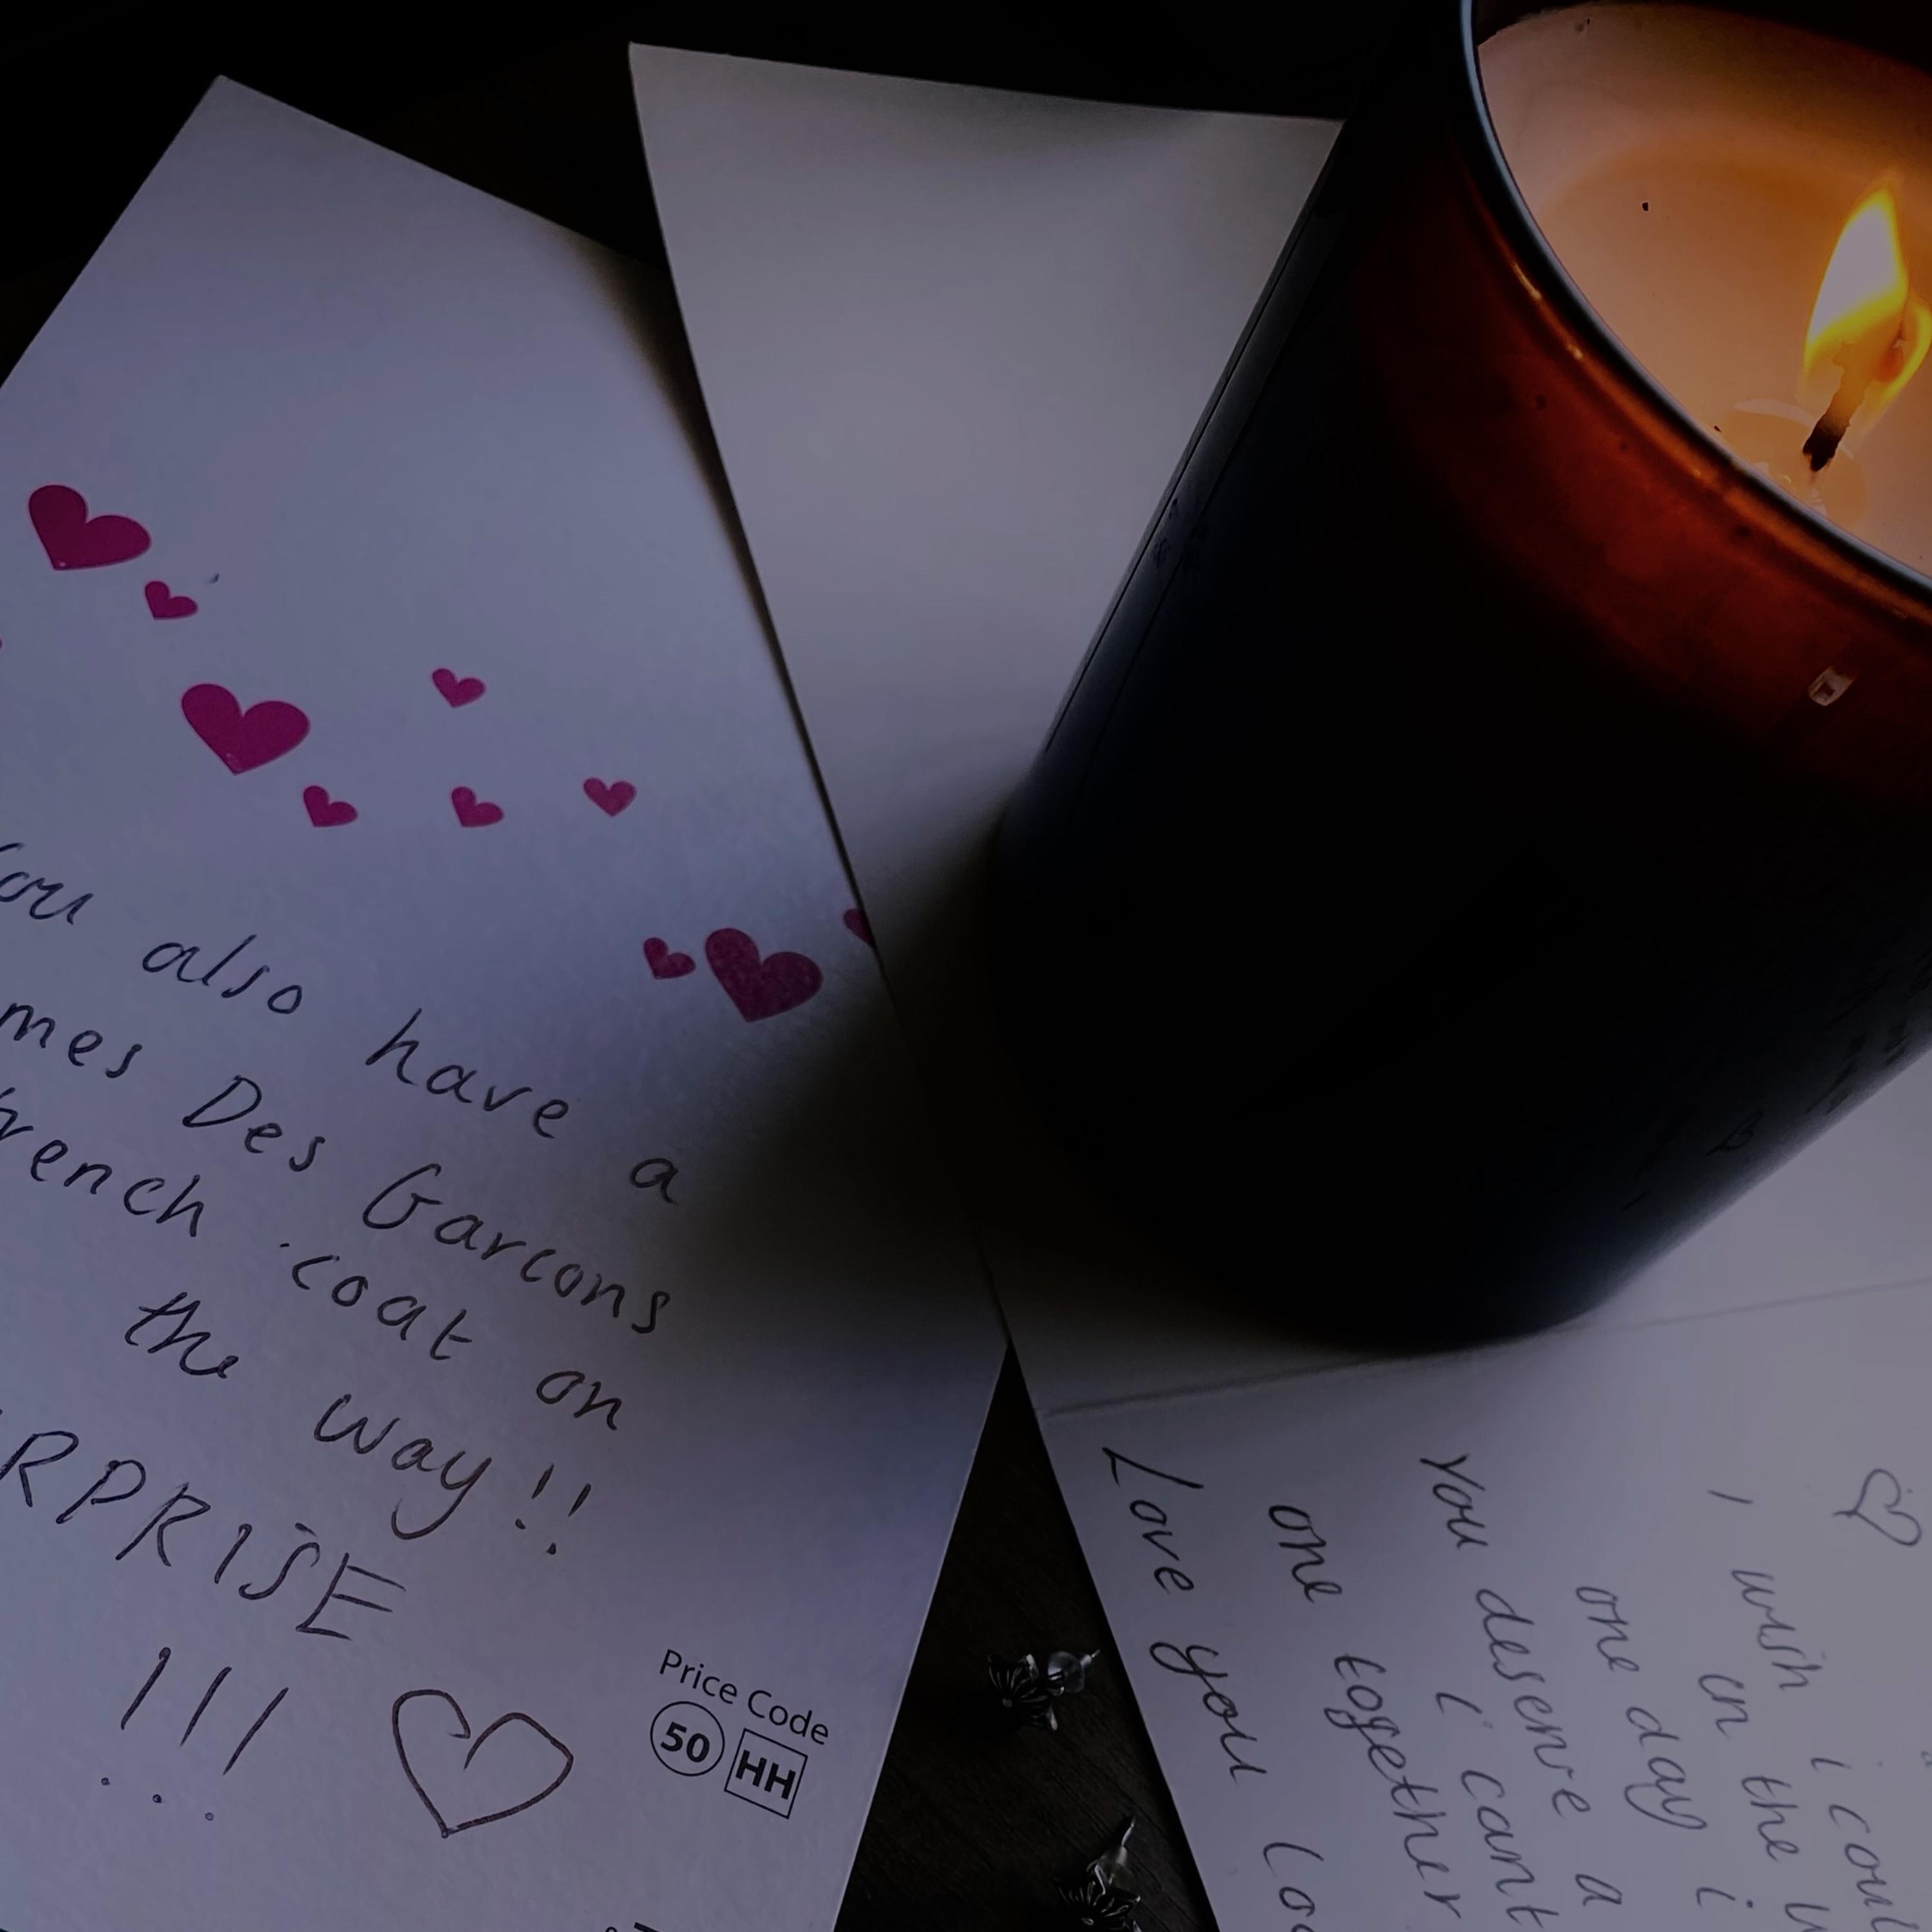 ou also have a
mes Des Garcons
rench coat on
the way!!
RPRISE
!!! 
Price Code
50 HH
♡
I wish i coul
in the w
one day i
You deserve a
i cant
one together
Love you loo